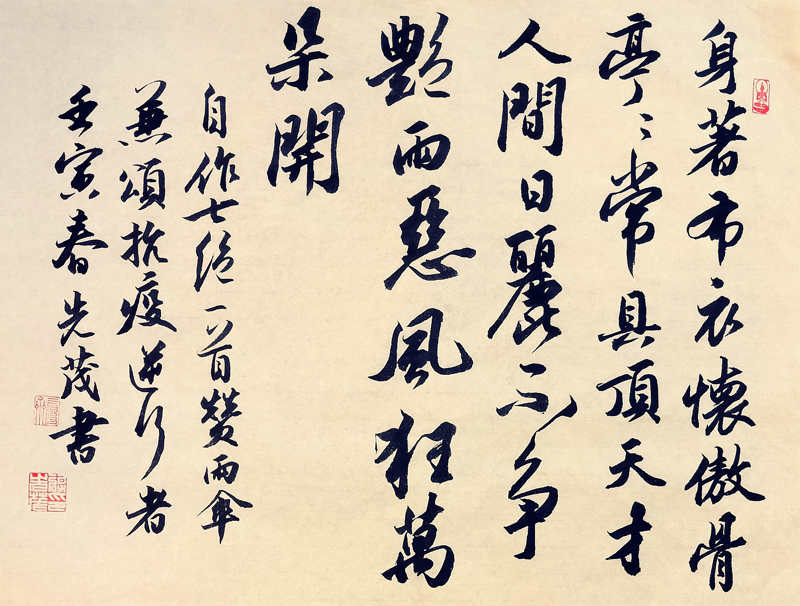 身著布衣懷傲骨
亭〻常具頂天才
人間日麗不争
艷雨惡風狂萬
朵開
自作七绝一首赞雨傘
兼頌抗疫逆行者
壬寅春先茂書